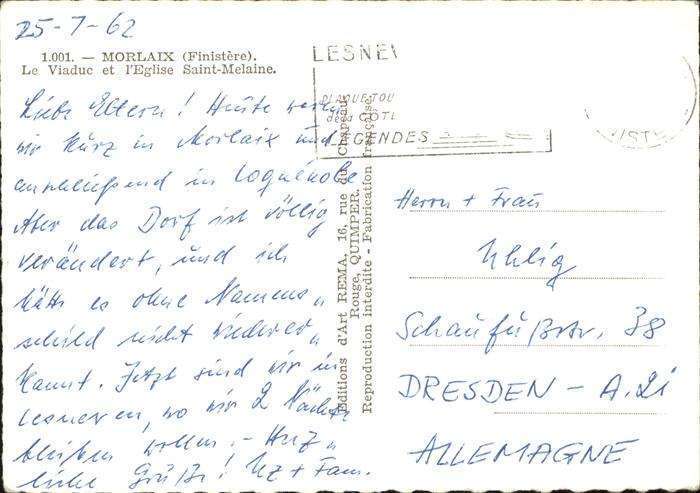 25-7-62
1.001. — MORLAIX (Finistère).
Le Viaduc et l'Eglise Saint-Melaine.
Liebe Eltern! Heute waren
wir kurz in Morlaix und
anschließend in Loquénolé
Aber das Dorf ist völlig
verändert, und ich
hätte es ohne Namens„
schild nicht wiederer„
kannt. Jetzt sind wir in
Lesneven, wo wir 2 Nächte
bleiben wollen. - Herz„
liche Grüße! Uz + Fam.
Editions d'Art REMA, 16, rue du Chapeau
Rouge, QUIMPER.
Reproduction Interdite - Fabrication française
LESNEV
PLAGUE TOU
de la COTE
LEGENDES
Herrn + Frau
Uhlig
Schaufußstr. 38
DRESDEN - A. 21
ALLEMAGNE